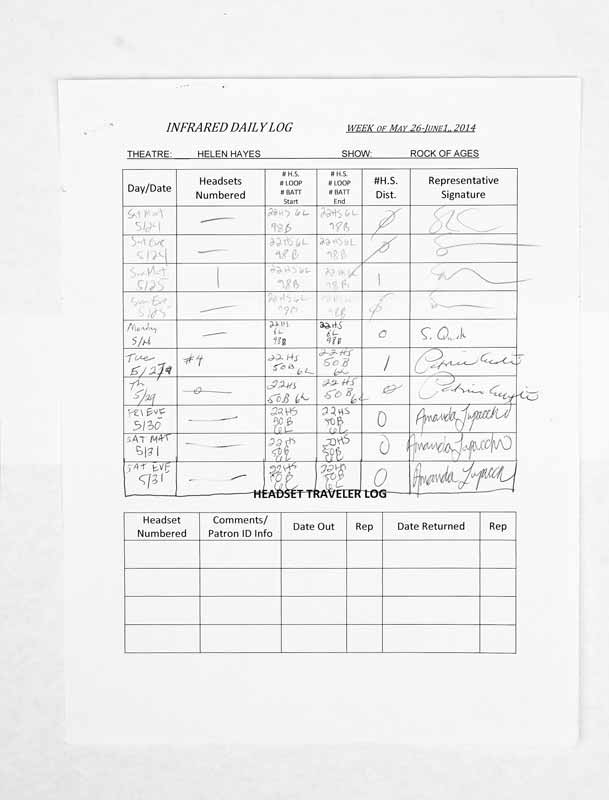 INFRARED DAILY LOG WEEK OF MAY 26-JUNE1,, 2014
THEATRE: HELEN HAYES SHOW: ROCK OF AGES
Day/Date Headsets Numbered # H.S. # LOOP # BATT Start # H.S. # LOOP # BATT End #H.S. Dist. Representative Signature
Sat Mat 5/24 — 22HS 6L 98B 22HS 6L 98B Ø
Sat Eve 5/24 — 22HS 6L 98B 22HS 6L 98B Ø
Sun Mat 5/25 | 22HS 6L 98B 22HS 98B 1
Sun Eve 5/25 — 22HS 6L 98B Ø
Monday 5/26 — 22HS 6L 98B 22HS 6L 98B 0 S. Quish
Tue 5/27 #4 22HS 50B 6L 22HS 50B 6L 1 Patricia
Th 5/29 0 22HS 50B 6L 22HS 50B 6L 0 Patricia
FRI EVE 5/30 — 22HS 50B 6L 22HS 50B 6L 0 Amanda
SAT MAT 5/31 — 22HS 50B 6L 22HS 50B 6L 0 Amanda
SAT EVE 5/31 — 22HS 50B 6L 22HS 50B 6L 0 Amanda
HEADSET TRAVELER LOG
Headset Numbered Comments/ Patron ID Info Date Out Rep Date Returned Rep